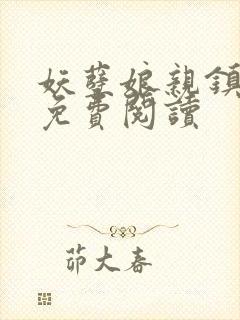 妖孽娘親鎮
免費閱讀
茆大春